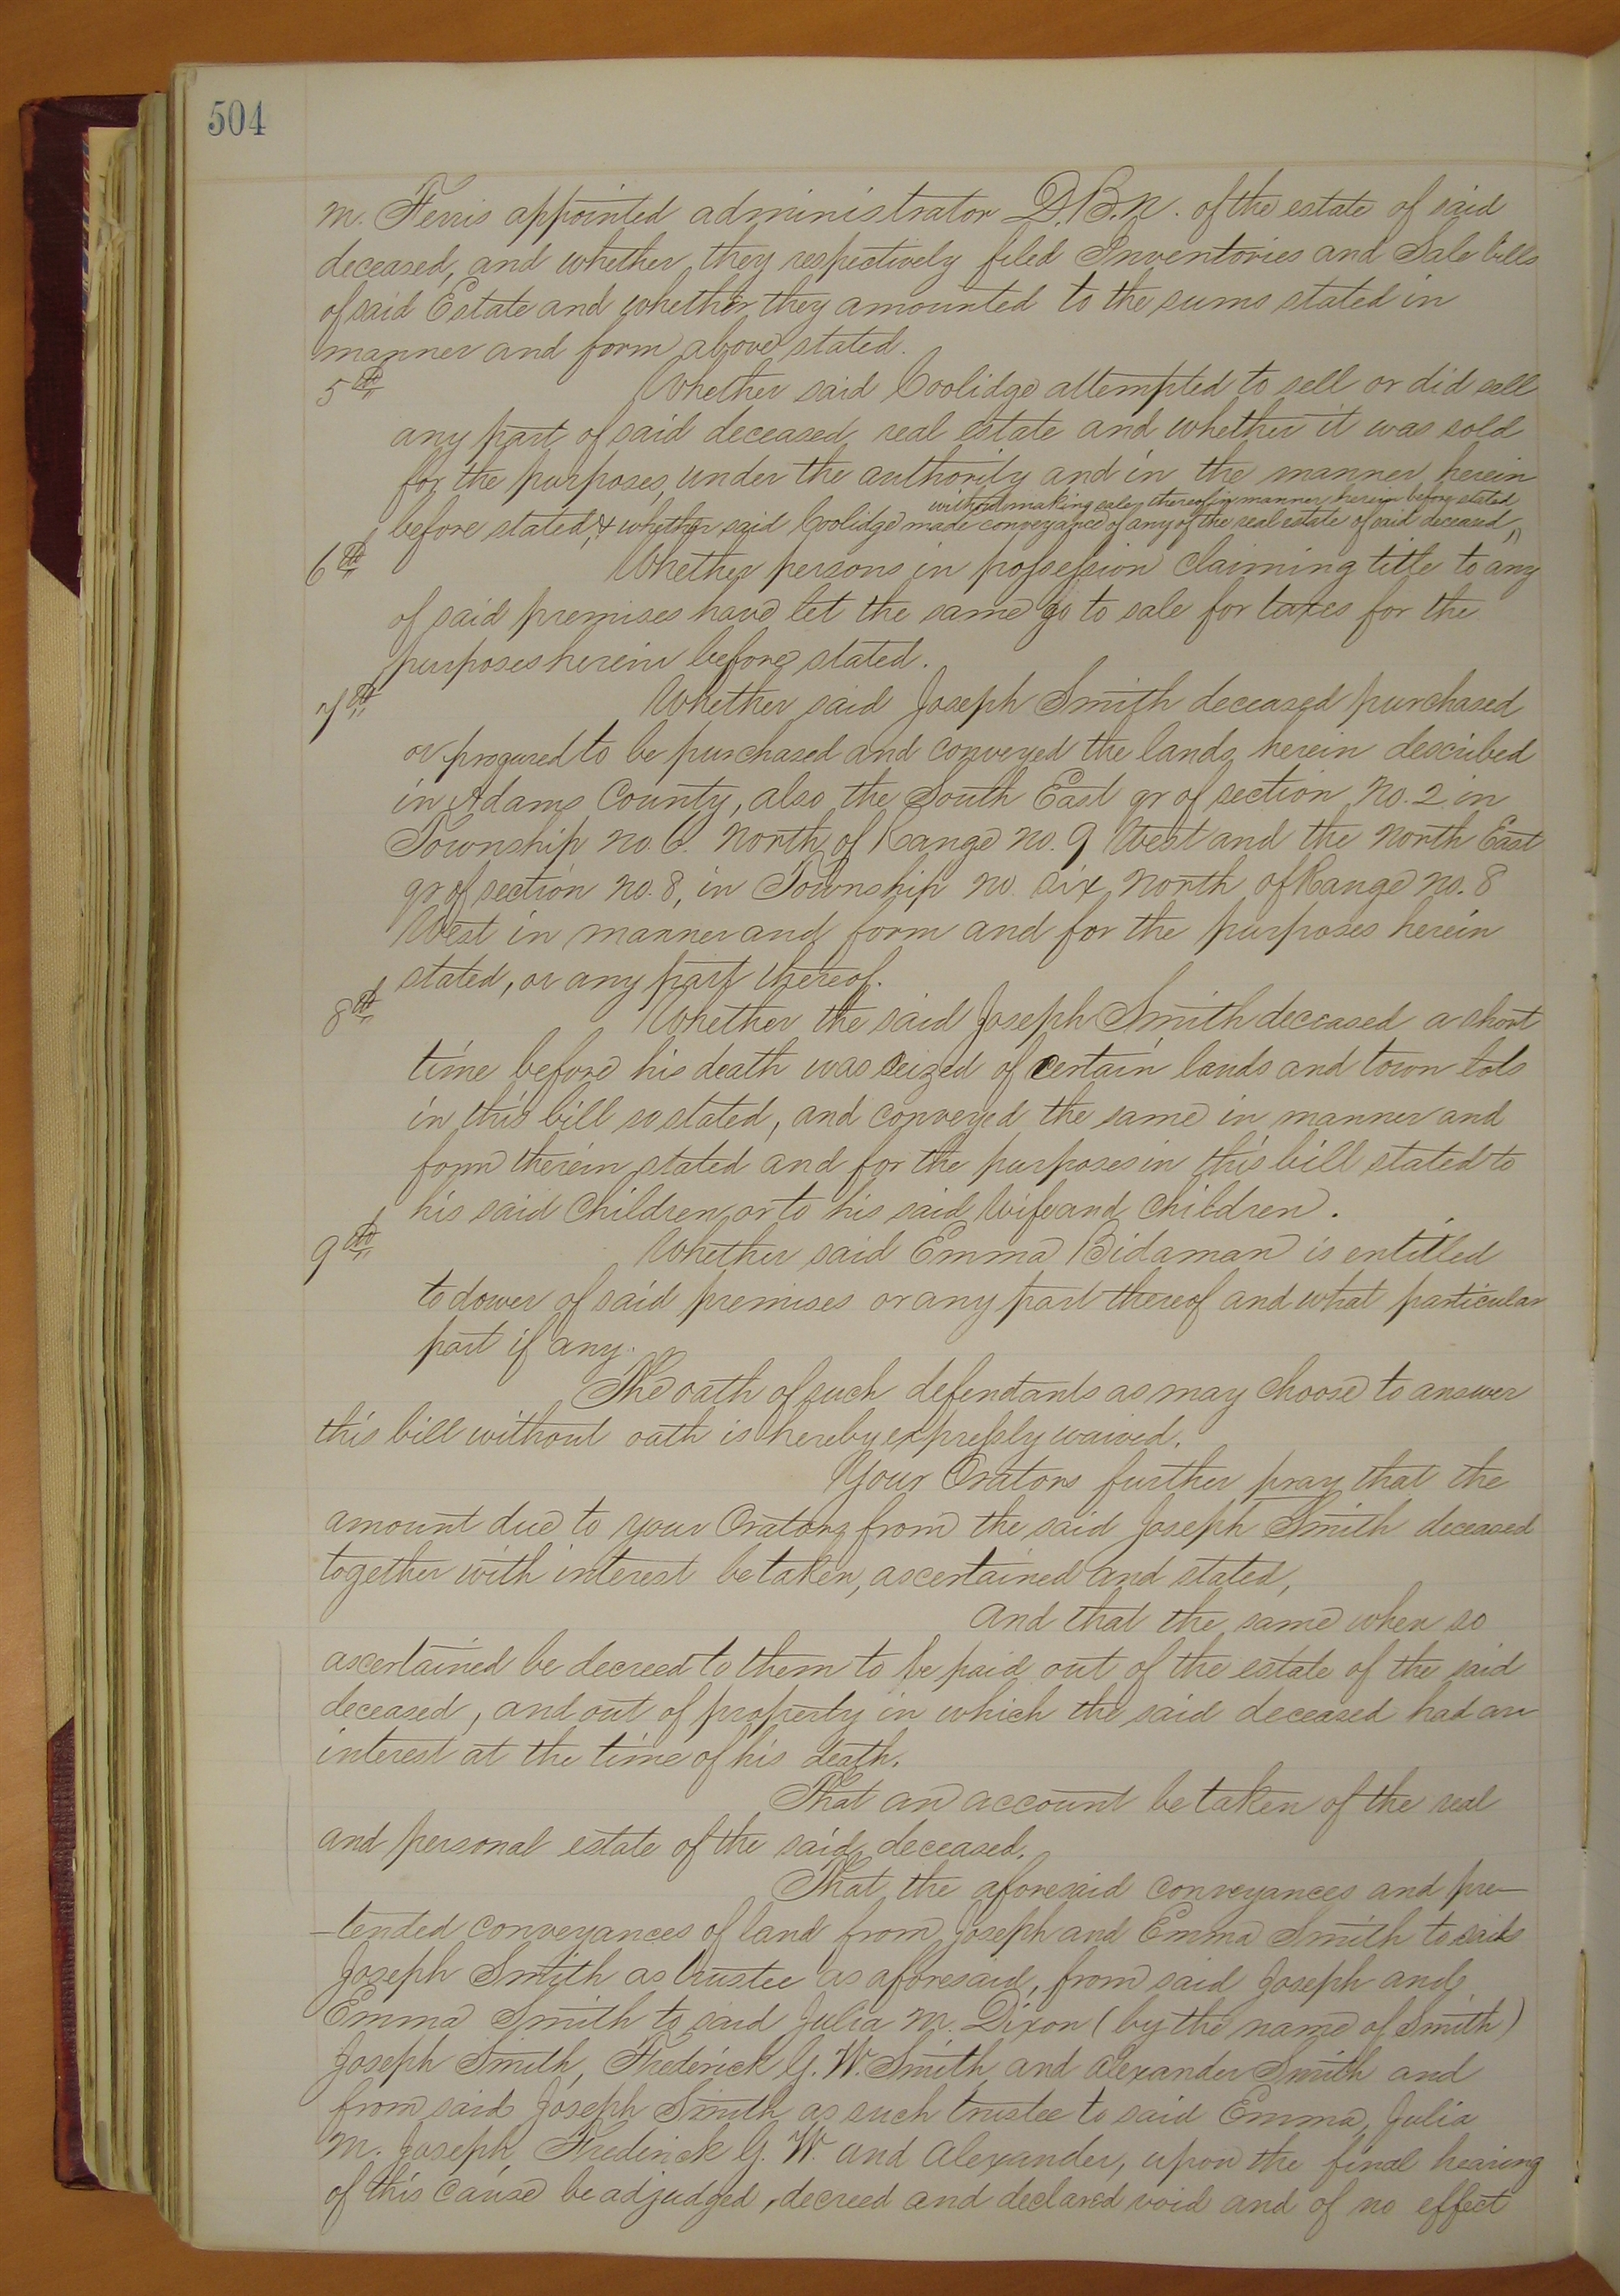 504
M. Ferris appointed administrator D.B.N. of the estate of said
deceased, and whether they respectively filed Inventories and Sale bills
of said Estate and whether they amounted to the sums stated in
manner and form above stated.
5th Whether said Coolidge attempted to sell or did sell
any part of said deceased real estate and whether it was sold
for the purposes, under the authority and in the manner herein
without making sales thereof in manner herein before stated
before stated, & whether said Coolidge made conveyance of any of the real estate of said deceased,
6th Whether persons in possession claiming title to any
of said premises have let the same go to sale for taxes for the
purposes herein before stated.
7th Whether said Joseph Smith deceased purchased
or procured to be purchased and conveyed the lands herein described
in Adams County, also the South East qr of section No. 2 in
Township No. 6. North of Range No. 9 West and the North East
qr of section No. 8, in Township No six North of Range No. 8
West in manner and form and for the purposes herein
stated, or any part thereof.
8th Whether the said Joseph Smith deceased a short
time before his death was seized of certain lands and town lots
in this bill so stated, and conveyed the same in manner and
form therein stated and for the purposes in this bill stated to
his said Children or to his said Wife and Children.
9th Whether said Emma Bidaman is entitled
to dower of said premises or any part thereof and what particular
part if any.
The oath of such defendants as may choose to answer
this bill without oath is hereby expressly waived.
Your Orators further pray that the
amount due to your Orators from the said Joseph Smith deceased
together with interest be taken, ascertained and stated,
And that the same when so
ascertained be decreed to them to be paid out of the estate of the said
deceased, and out of property in which the said deceased had an
interest at the time of his death.
That an account be taken of the real
and personal estate of the said deceased.
That the aforesaid conveyances and pre-
-tended conveyances of land from Joseph and Emma Smith to said
Joseph Smith as trustee as aforesaid, from said Joseph and
Emma Smith to said Julia M. Dixon (by the name of Smith)
Joseph Smith, Frederick G. W. Smith and Alexander Smith and
from said Joseph Smith as such trustee to said Emma, Julia
M. Joseph, Frederick G. W. and Alexander, upon the final hearing
of this cause be adjudged, decreed and declared void and of no effect